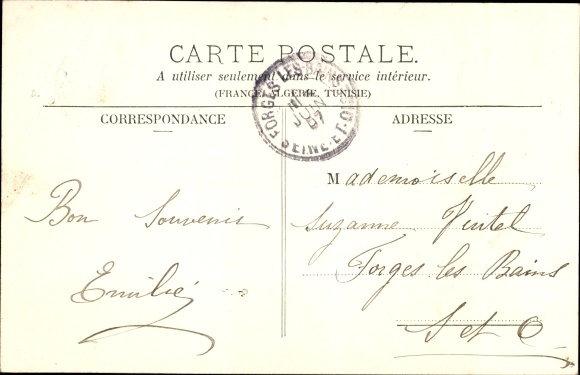 CARTE POSTALE.
A utiliser seulement dans le service intérieur.
(FRANCE, ALGERIE, TUNISIE)
FORGES-LES-BAINS
JUIN
07
SEINE-ET-O.
CORRESPONDANCE
ADRESSE
Bon Souvenir
Emilie
Mademoiselle
Suzanne
Forges les Bains
S et O